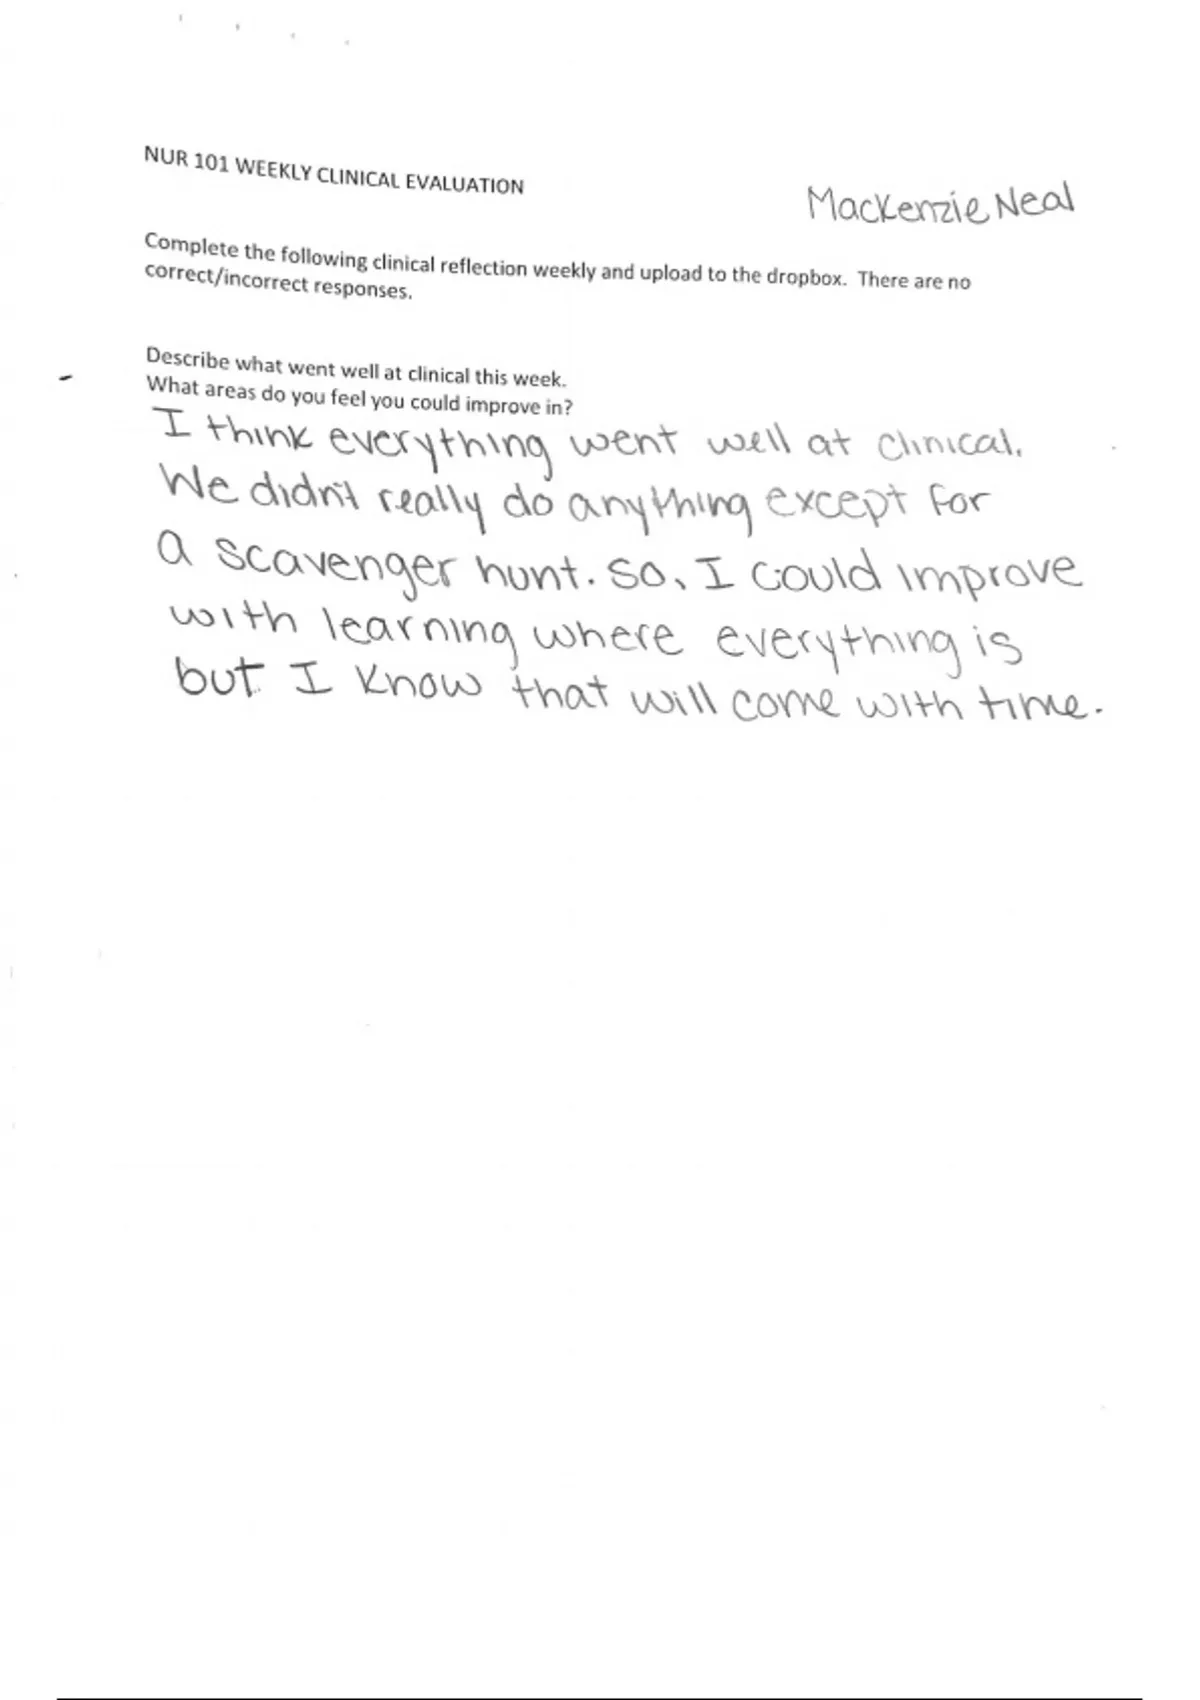 NUR 101 WEEKLY CLINICAL EVALUATION
Mackenzie Neal
Complete the following clinical reflection weekly and upload to the dropbox. There are no
correct/incorrect responses.
Describe what went well at clinical this week.
What areas do you feel you could improve in?
I think everything went well at clinical.
We didn't really do anything except for
a scavenger hunt. So, I could improve
with learning where everything is
but I know that will come with time.